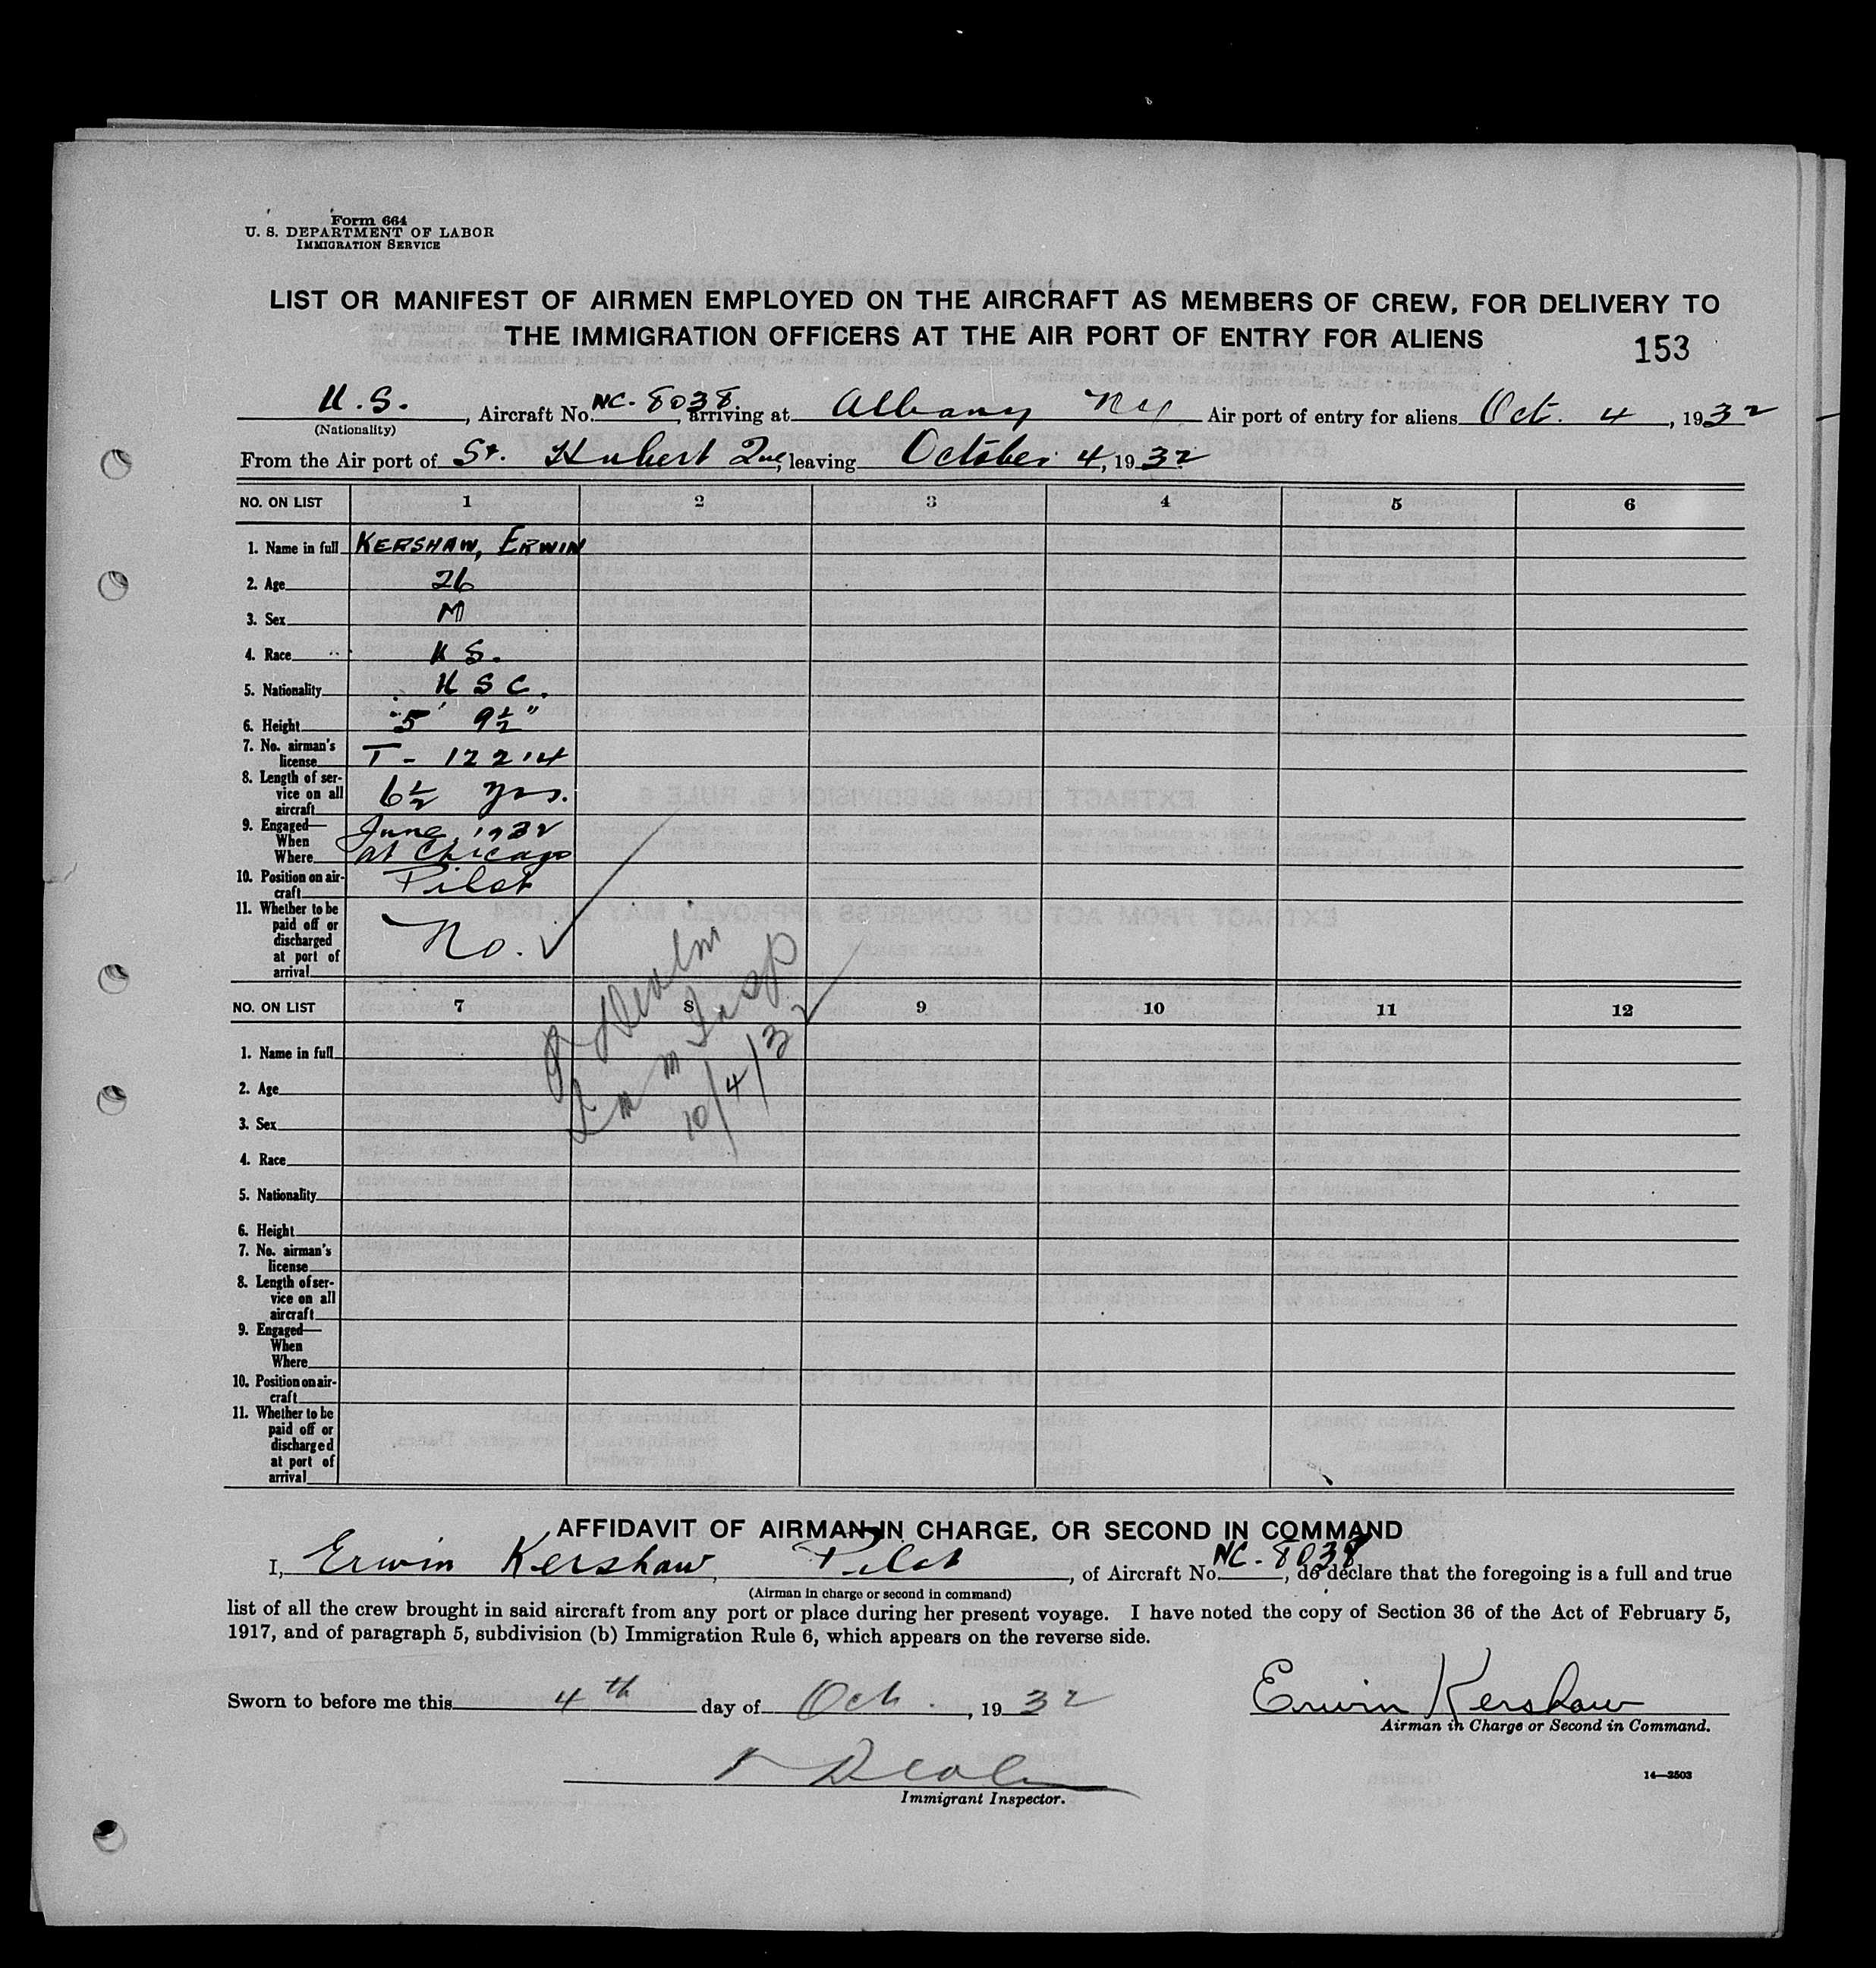 Form 664
U. S. DEPARTMENT OF LABOR
IMMIGRATION SERVICE
LIST OR MANIFEST OF AIRMEN EMPLOYED ON THE AIRCRAFT AS MEMBERS OF CREW, FOR DELIVERY TO
THE IMMIGRATION OFFICERS AT THE AIR PORT OF ENTRY FOR ALIENS
153
U.S., Aircraft No. NC-8038, arriving at Albany NY Air port of entry for aliens Oct. 4, 1932
(Nationality)
From the Air port of St. Hubert Que, leaving October 4, 1932
NO. ON LIST 1 2 3 4 5 6
1. Name in full KERSHAW, ERWIN
2. Age 26
3. Sex M
4. Race U S.
5. Nationality U S C.
6. Height 5' 9½"
7. No. airman's
license T-12214
8. Length of ser-
vice on all
aircraft 6½ yrs.
9. Engaged—
When June, 1932
Where at Chicago
10. Position on air-
craft Pilot
11. Whether to be
paid off or
discharged
at port of
arrival No.
Imm Insp
10/4/32
NO. ON LIST 7 8 9 10 11 12
1. Name in full
2. Age
3. Sex
4. Race
5. Nationality
6. Height
7. No. airman's
license
8. Length of ser-
vice on all
aircraft
9. Engaged—
When
Where
10. Position on air-
craft
11. Whether to be
paid off or
discharged
at port of
arrival
AFFIDAVIT OF AIRMAN IN CHARGE, OR SECOND IN COMMAND
I, Erwin Kershaw, Pilot, of Aircraft No. NC-8038, do declare that the foregoing is a full and true
(Airman in charge or second in command)
list of all the crew brought in said aircraft from any port or place during her present voyage. I have noted the copy of Section 36 of the Act of February 5,
1917, and of paragraph 5, subdivision (b) Immigration Rule 6, which appears on the reverse side.
Sworn to before me this 4th day of Oct., 1932
Erwin Kershaw
Airman in Charge or Second in Command.
Immigrant Inspector.
14—2503